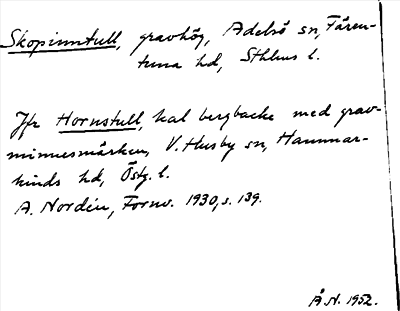 Skopinntull, gravhög, Adelsö sn, Fären-
tuna hd, Sthlms l.
Jfr Hornstull, kal bergbacke med grav-
minnesmärken, V. Husby sn, Hammar-
kinds hd, Östg. l.
A. Nordén, Fornv. 1930, s. 139.
Å N. 1952.